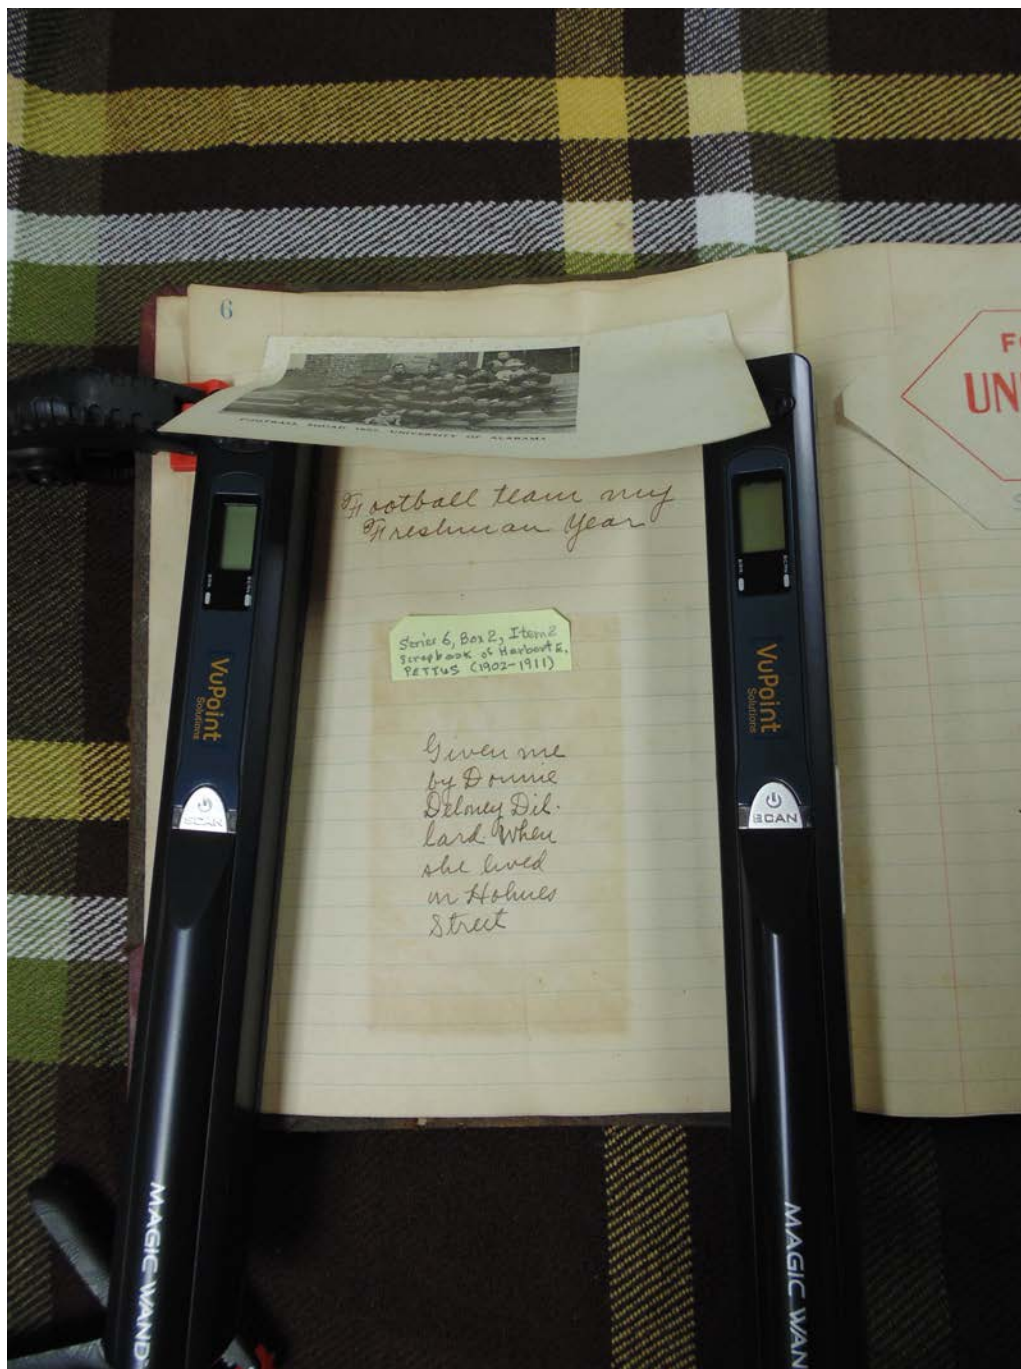 6
FOOTBALL SQUAD UNIVERSITY OF ALABAMA
Football team my
Freshman Year
Series 6, Box 2, Item 2
Scrapbook of Herbert E.
PETTUS (1902-1911)
Given me
by Donnie
Deloney Dil-
lard. When
she lived
on Holmes
Street
VuPoint
Solutions
SCAN
MAGIC WAND
VuPoint
Solutions
SCAN
MAGIC WAN
FO
UN